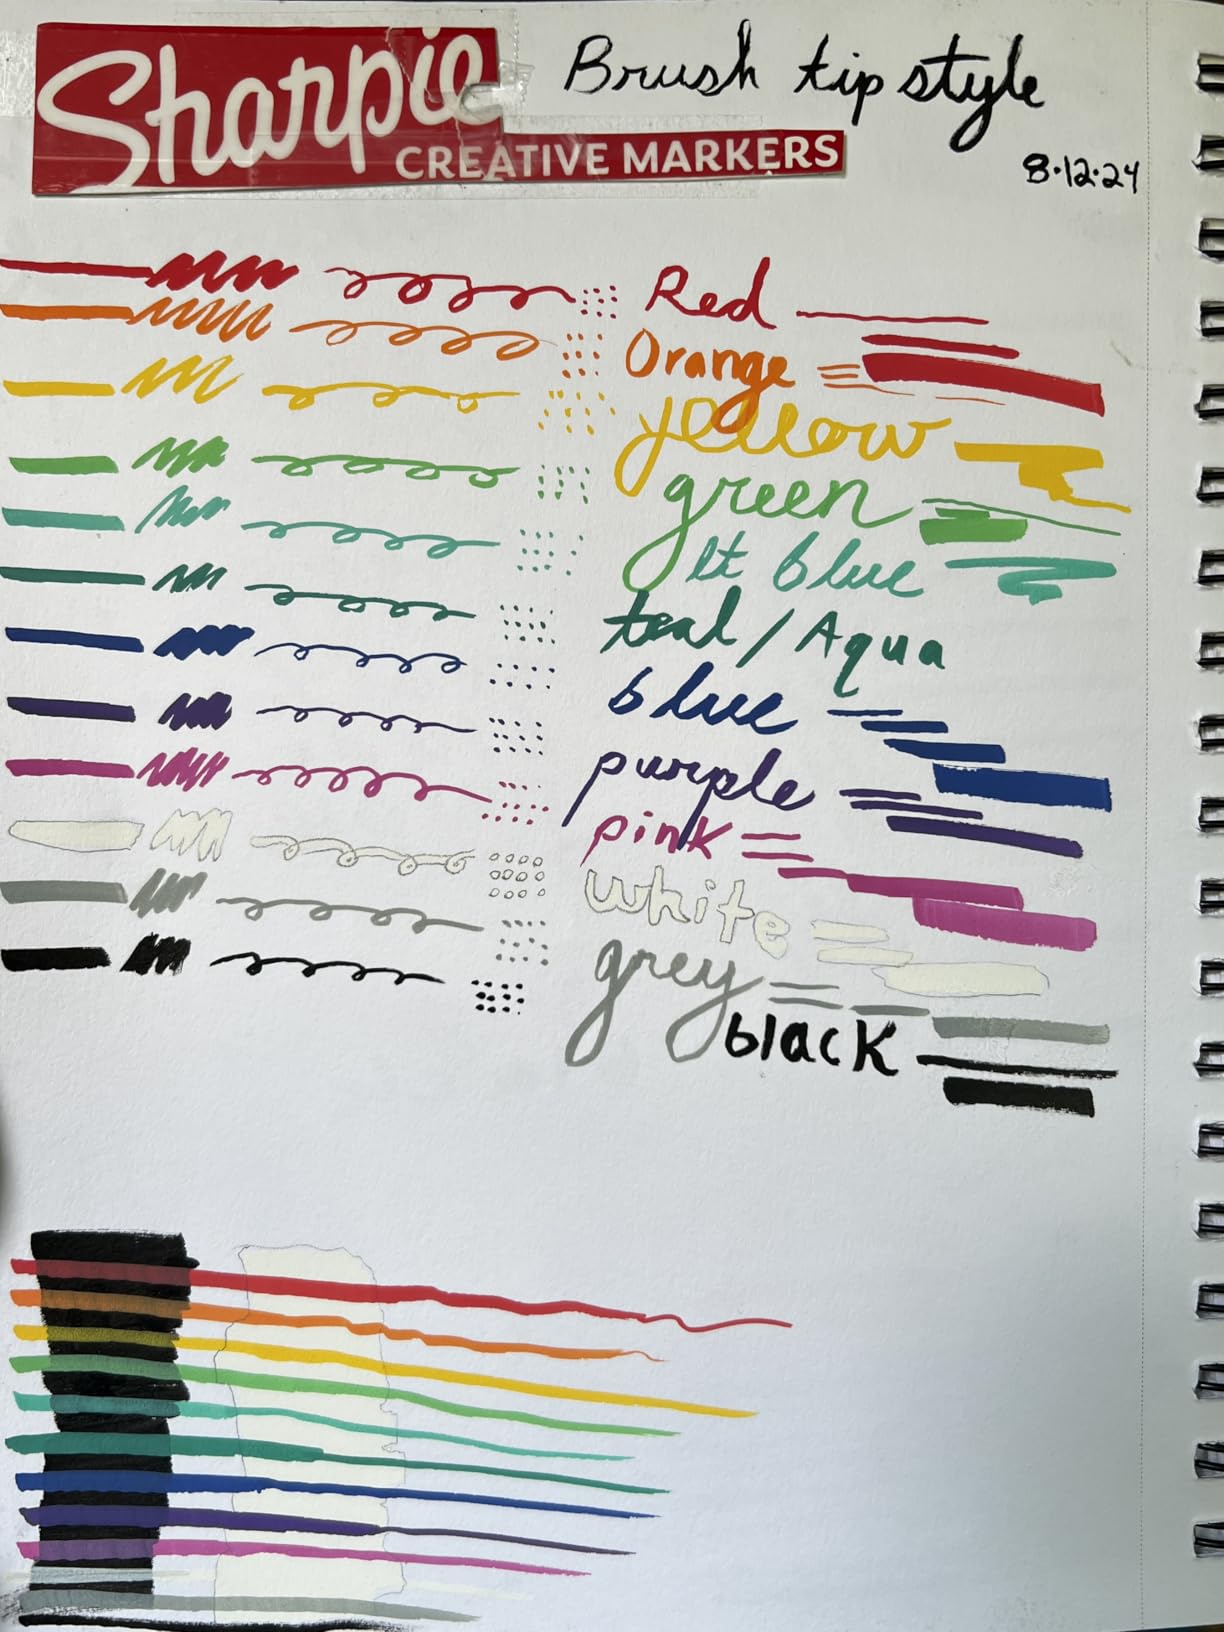 Sharpie
CREATIVE MARKERS
Brush tip style
8·12·24
Red
Orange
yellow
green
lt blue
teal / Aqua
blue
purple
pink
white
grey
black